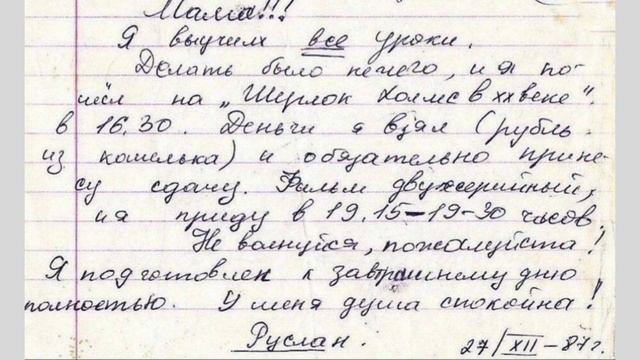 Мама!!!
Я выучил все уроки.
Делать было нечего, и я по-
шёл на „Шерлок Холмс в XX веке".
в 16.30. Деньги я взял (рубль
из кошелька) и обязательно прине-
су сдачу. Фильм двухсерийный,
и я приду в 19.15-19-30 часов
Не волнуйся, пожалуйста!
Я подготовлен к завтрашнему дню
полностью. У меня душа спокойна!
Руслан. 27/XII-87г.